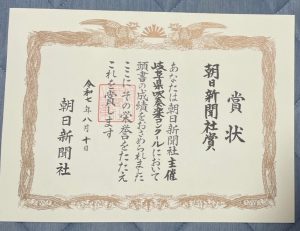 賞状
朝日新聞社賞
あなたは朝日新聞社主催
岐阜県吹奏楽コンクールにおいて
頭書の成績をおさめられました
ここにその栄誉をたたえ
これを賞します
令和七年八月十日
朝日新聞社